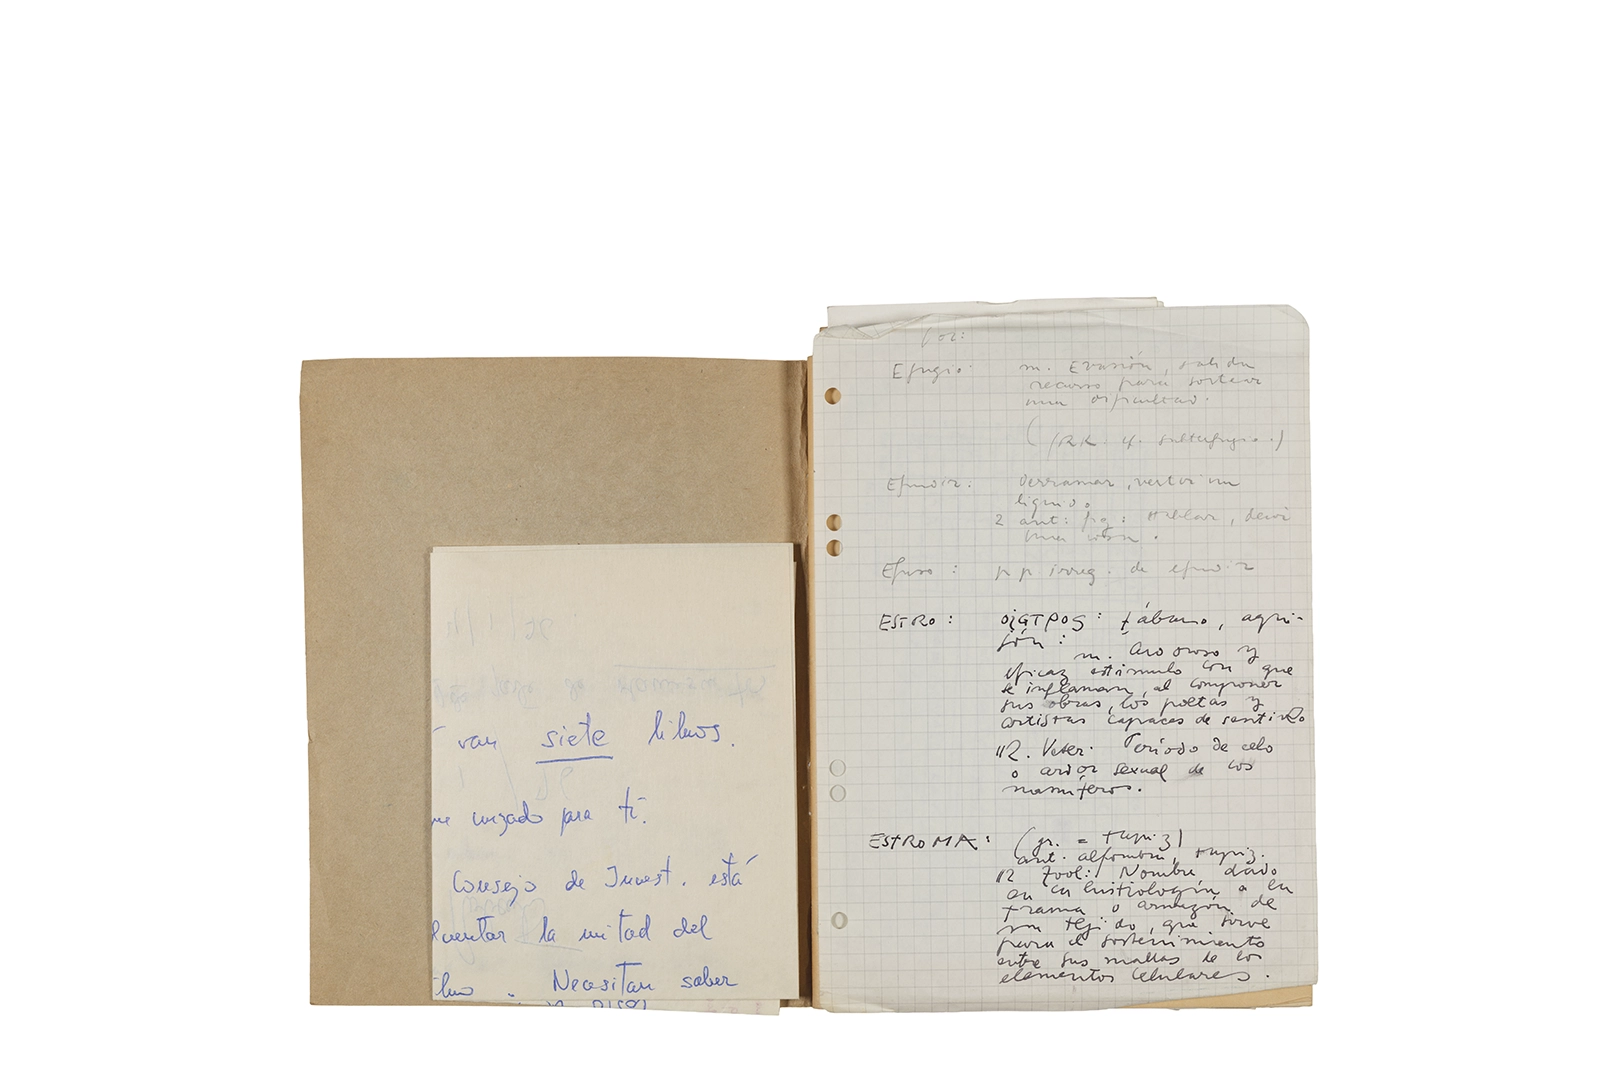 van siete libros.
cuizado para ti.
Consejo de Invest. está
la mitad del
Necesitan saber
Voc:
Efugio: m. Evasión, salida
recurso para sortear
una dificultad.
(/RK cf. subterfugio.)
Efundir: Derramar, vertir un
líquido.
2 ant: fig: Hablar, decir
una cosa.
Efuso: p p irreg. de efundir
ESTRO: OIGTPOS: tábano, agui-
jón:
m. Ardoroso y
eficaz estímulo con que
se inflaman, al componer
sus obras, los poetas y
artistas capaces de sentirlo
//2. Veter. Período de celo
o ardor sexual de los
mamíferos.
ESTROMA: (gr. = tapiz)
ant. alfombra, tapiz.
//2 Zool: Nombre dado
en la histología a la
trama o armazón de
un tejido, que sirve
para el sostenimiento
entre sus mallas de los
elementos celulares.